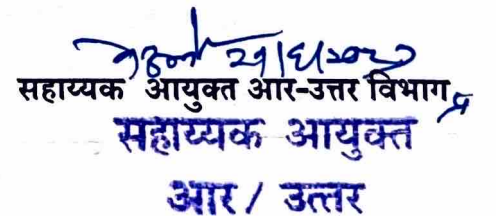 सहाय्यक आयुक्त आर-उत्तर विभाग
सहाय्यक आयुक्त
आर / उत्तर